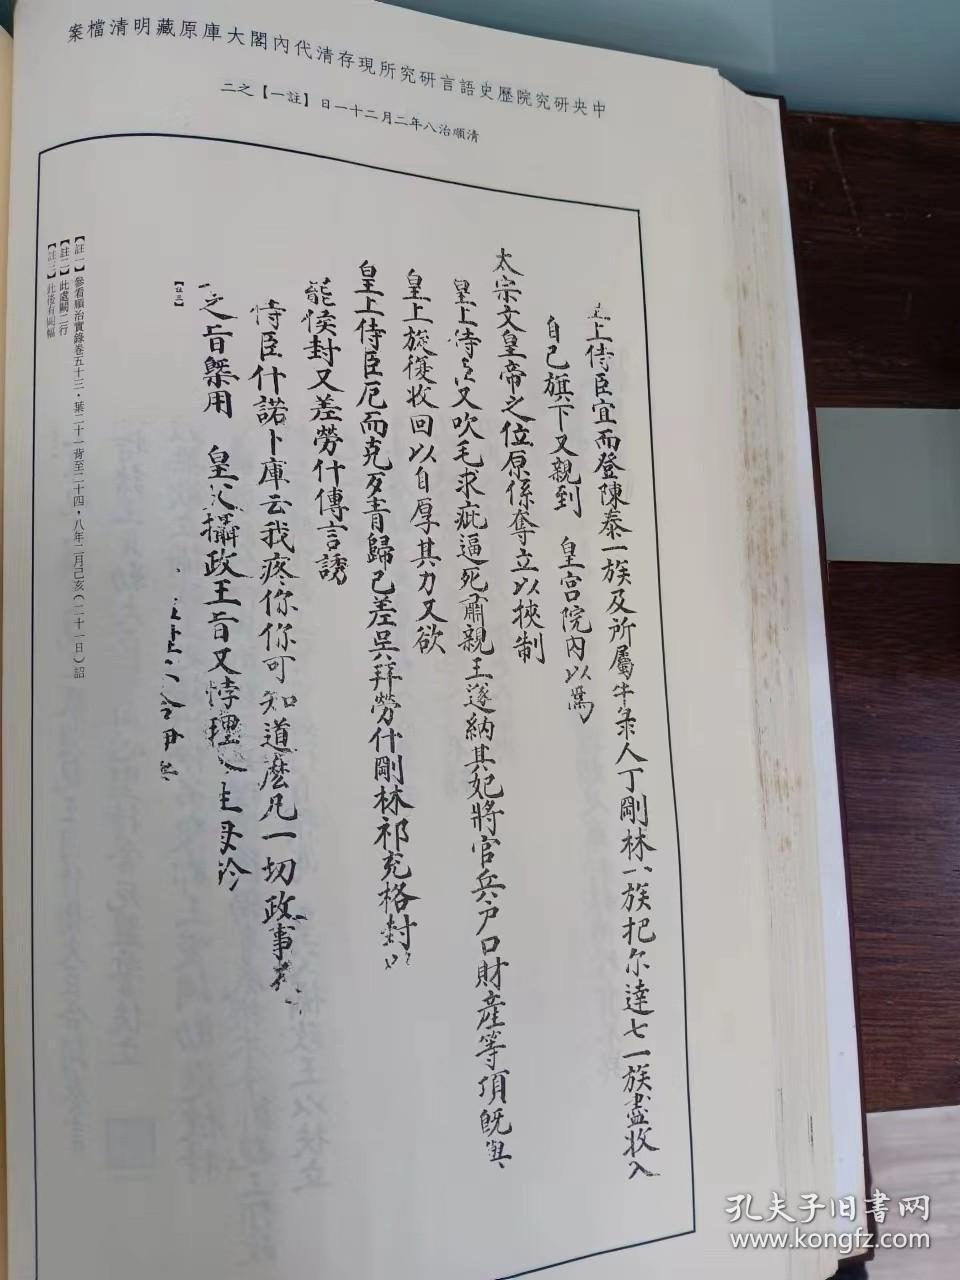 中央研究院歷史語言研究所現存清代內閣大庫原藏明清檔案
清順治八年二月二十一日【註一】之二
上侍臣宜而登陳泰一族及所屬牛彔人丁剛林一族把尔達七一族盡收入
自己旗下又親到　皇宮院內以爲
太宗文皇帝之位原係奪立以挾制
皇上侍臣又吹毛求疵逼死肅親王遂納其妃將官兵户口財產等項既與
皇上旋復收回以自厚其力又欲
皇上侍臣厄而克歹青歸己差吳拜勞什剛林祁充格封以
罷侯封又差勞什傳言誘
侍臣什諾卜庫云我疼你你可知道麽凡一切政事
之旨槩用　皇父攝政王旨又悖理 生母
【註三】
【註一】參看順治實錄卷五十三・葉二十一背至二十四・八年二月己亥(二十一日)詔
【註二】此處闕二行
【註三】此後有闕幅
孔夫子旧書网
www.kongfz.com